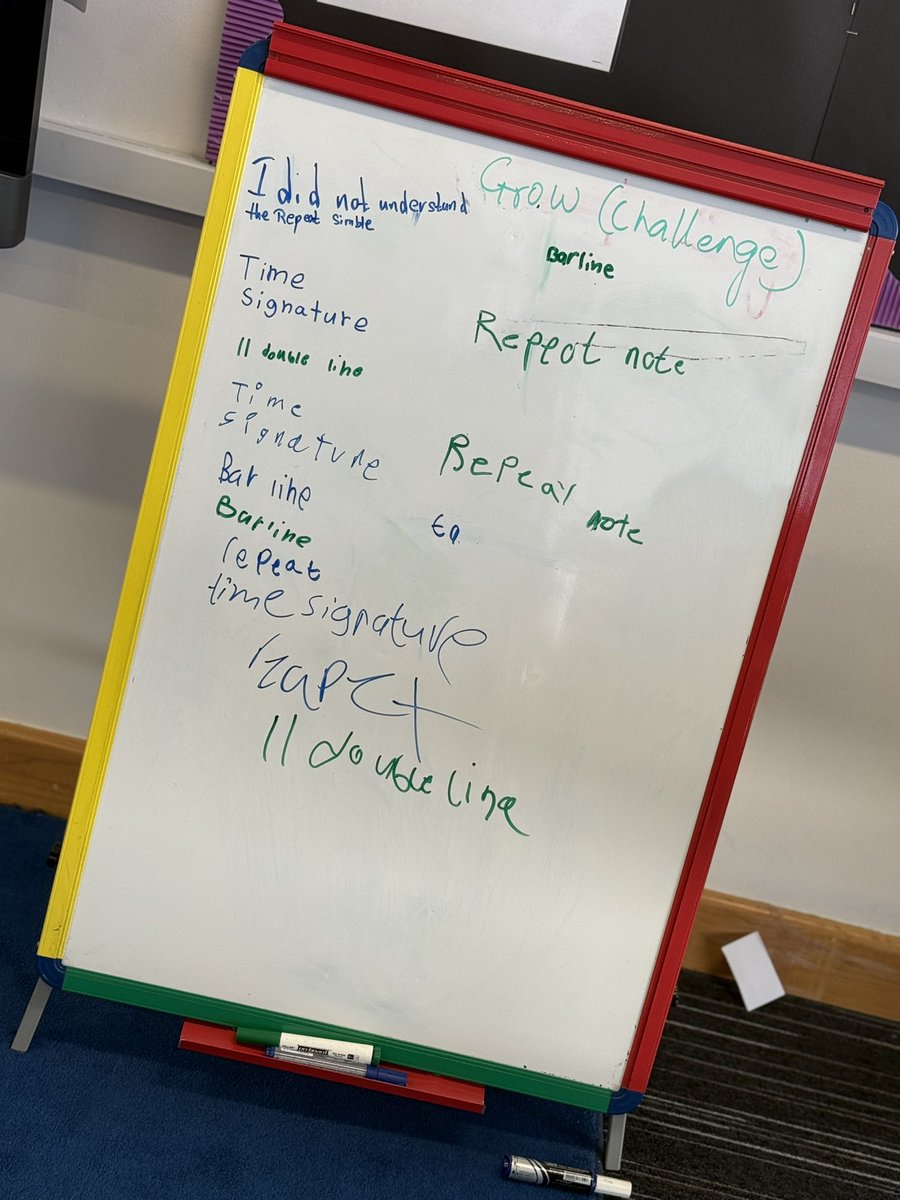 Grow (Challenge)
I did not understand
the Repeat Simble
Barline
Time
Signature
Repeat note
|| double line
Time
Signature
Repeat
note
Bar line
Barline
repeat
time signature
|| double line